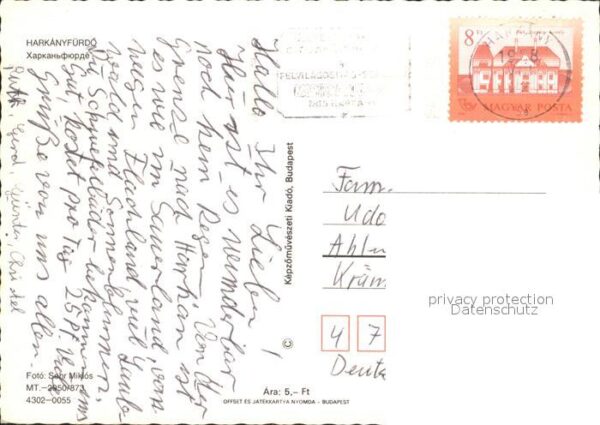 HARKÁNYFÜRDŐ
Харканьфюрдё
Hallo Ihr Lieben!
Hier ist es wunderbar
nach dem Regen. Von der
Grenze nach Harkan ist
es wie im Sauerland, von
wegen Flachland, viel Laub-
wald und Sonnenblumen.
Schwefelbäder bekommen uns
gut kostet pro Tag 25 Pf.
Grüße von uns allen.
Gerd, Günter, Christel
Foto: Sebr Miklós
MT.—2950/873
4302-0055
Képzőművészeti Kiadó, Budapest
©
Ára: 5,— Ft
OFFSET ÉS JÁTÉKKÁRTYA NYOMDA - BUDAPEST
8 Ft
MAGYAR POSTA
Fam.
Udo
Ahl
Kräm
4 7
Deut
privacy protection
Datenschutz